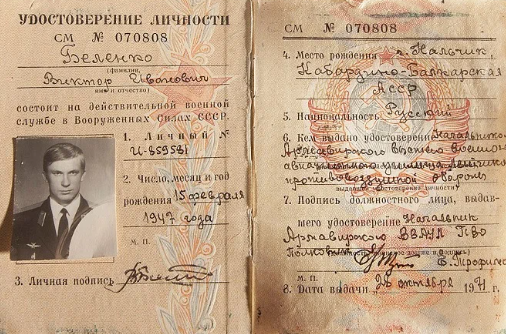 УДОСТОВЕРЕНИЕ ЛИЧНОСТИ
СМ № 070808
Беленко
(фамилия,
Виктор Иванович
имя и отчество)
состоит на действительной военной
службе в Вооруженных Силах СССР.
1. Личный №
И-659581
2. Число, месяц и год
рождения 15 февраля
1947 года
м. п.
3. Личная подпись
СМ № 070808
4. Место рождения г. Нальчик
Кабардино-Балкарская
АССР
5. Национальность Русский
6. Кем выдано удостоверение Начальником
Армавирского высшего военного
авиационного училища летчиков
противовоздушной обороны
выдавшего удостоверение личности)
7. Подпись должностного лица, выдав-
шего удостоверение Начальник
Армавирского ВВАУЛ ПВО
полковник
м. п.
8. Дата выдачи 26 октября 1971 г.